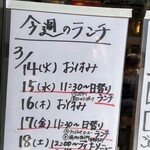 今週のランチ
3/
14(火) お休み
15(水) 11:30~日替り
ランチ
16(木) お休み
17(金) 11:30~日替り
ランチ
18(土) 12:00~